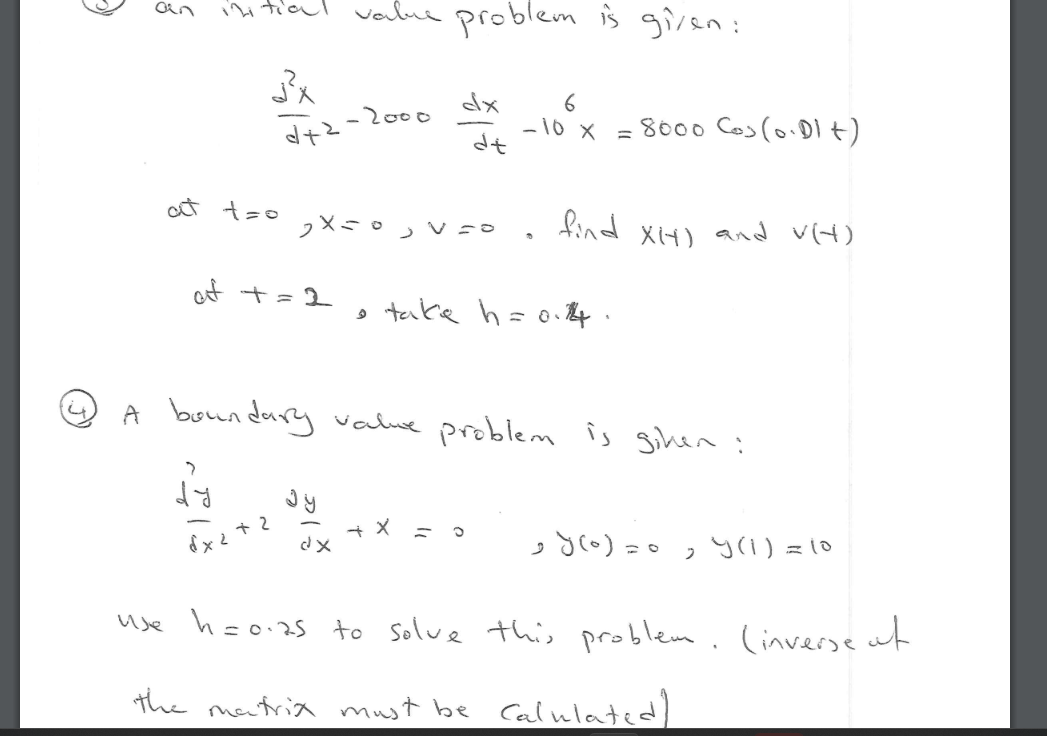 ③ an initial value problem is given:
d²x/dt² - 2000 dx/dt - 10⁶ x = 8000 Cos(0.01 t)
at t=0, x=0, v=0. find x(t) and v(t)
at t=2, take h=0.4.
④ A boundary value problem is given:
d²y/dx² + 2 dy/dx + x = 0, y(0)=0, y(1)=10
use h=0.25 to solve this problem. (inverse of
the matrix must be Calulated)